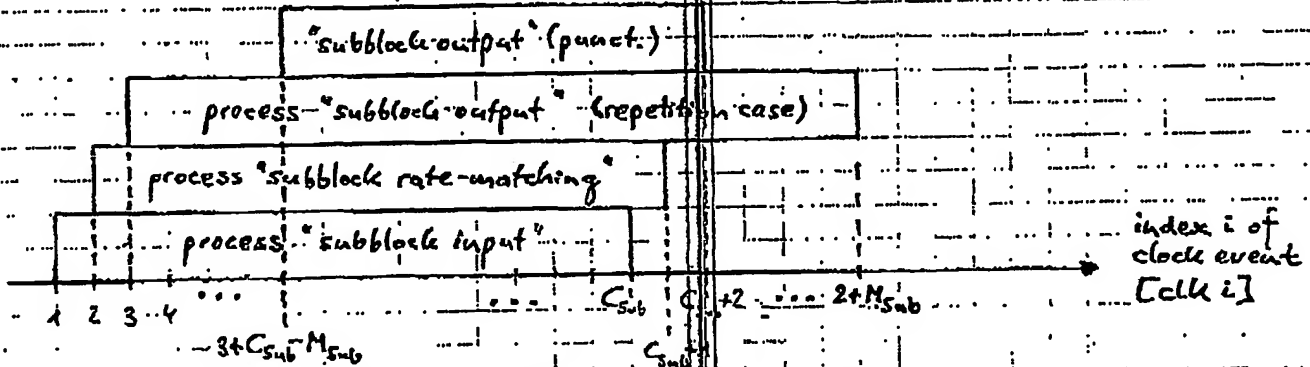 "subblock-output" (punct.)
process "subblock-output" (repetition case)
process "subblock rate-matching"
process "subblock input"
index i of
clock event
[clk i]
1 2 3 4 ... ... C_Sub +2 ... 2+M_Sub
3+C_Sub-M_Sub
C_Sub+1